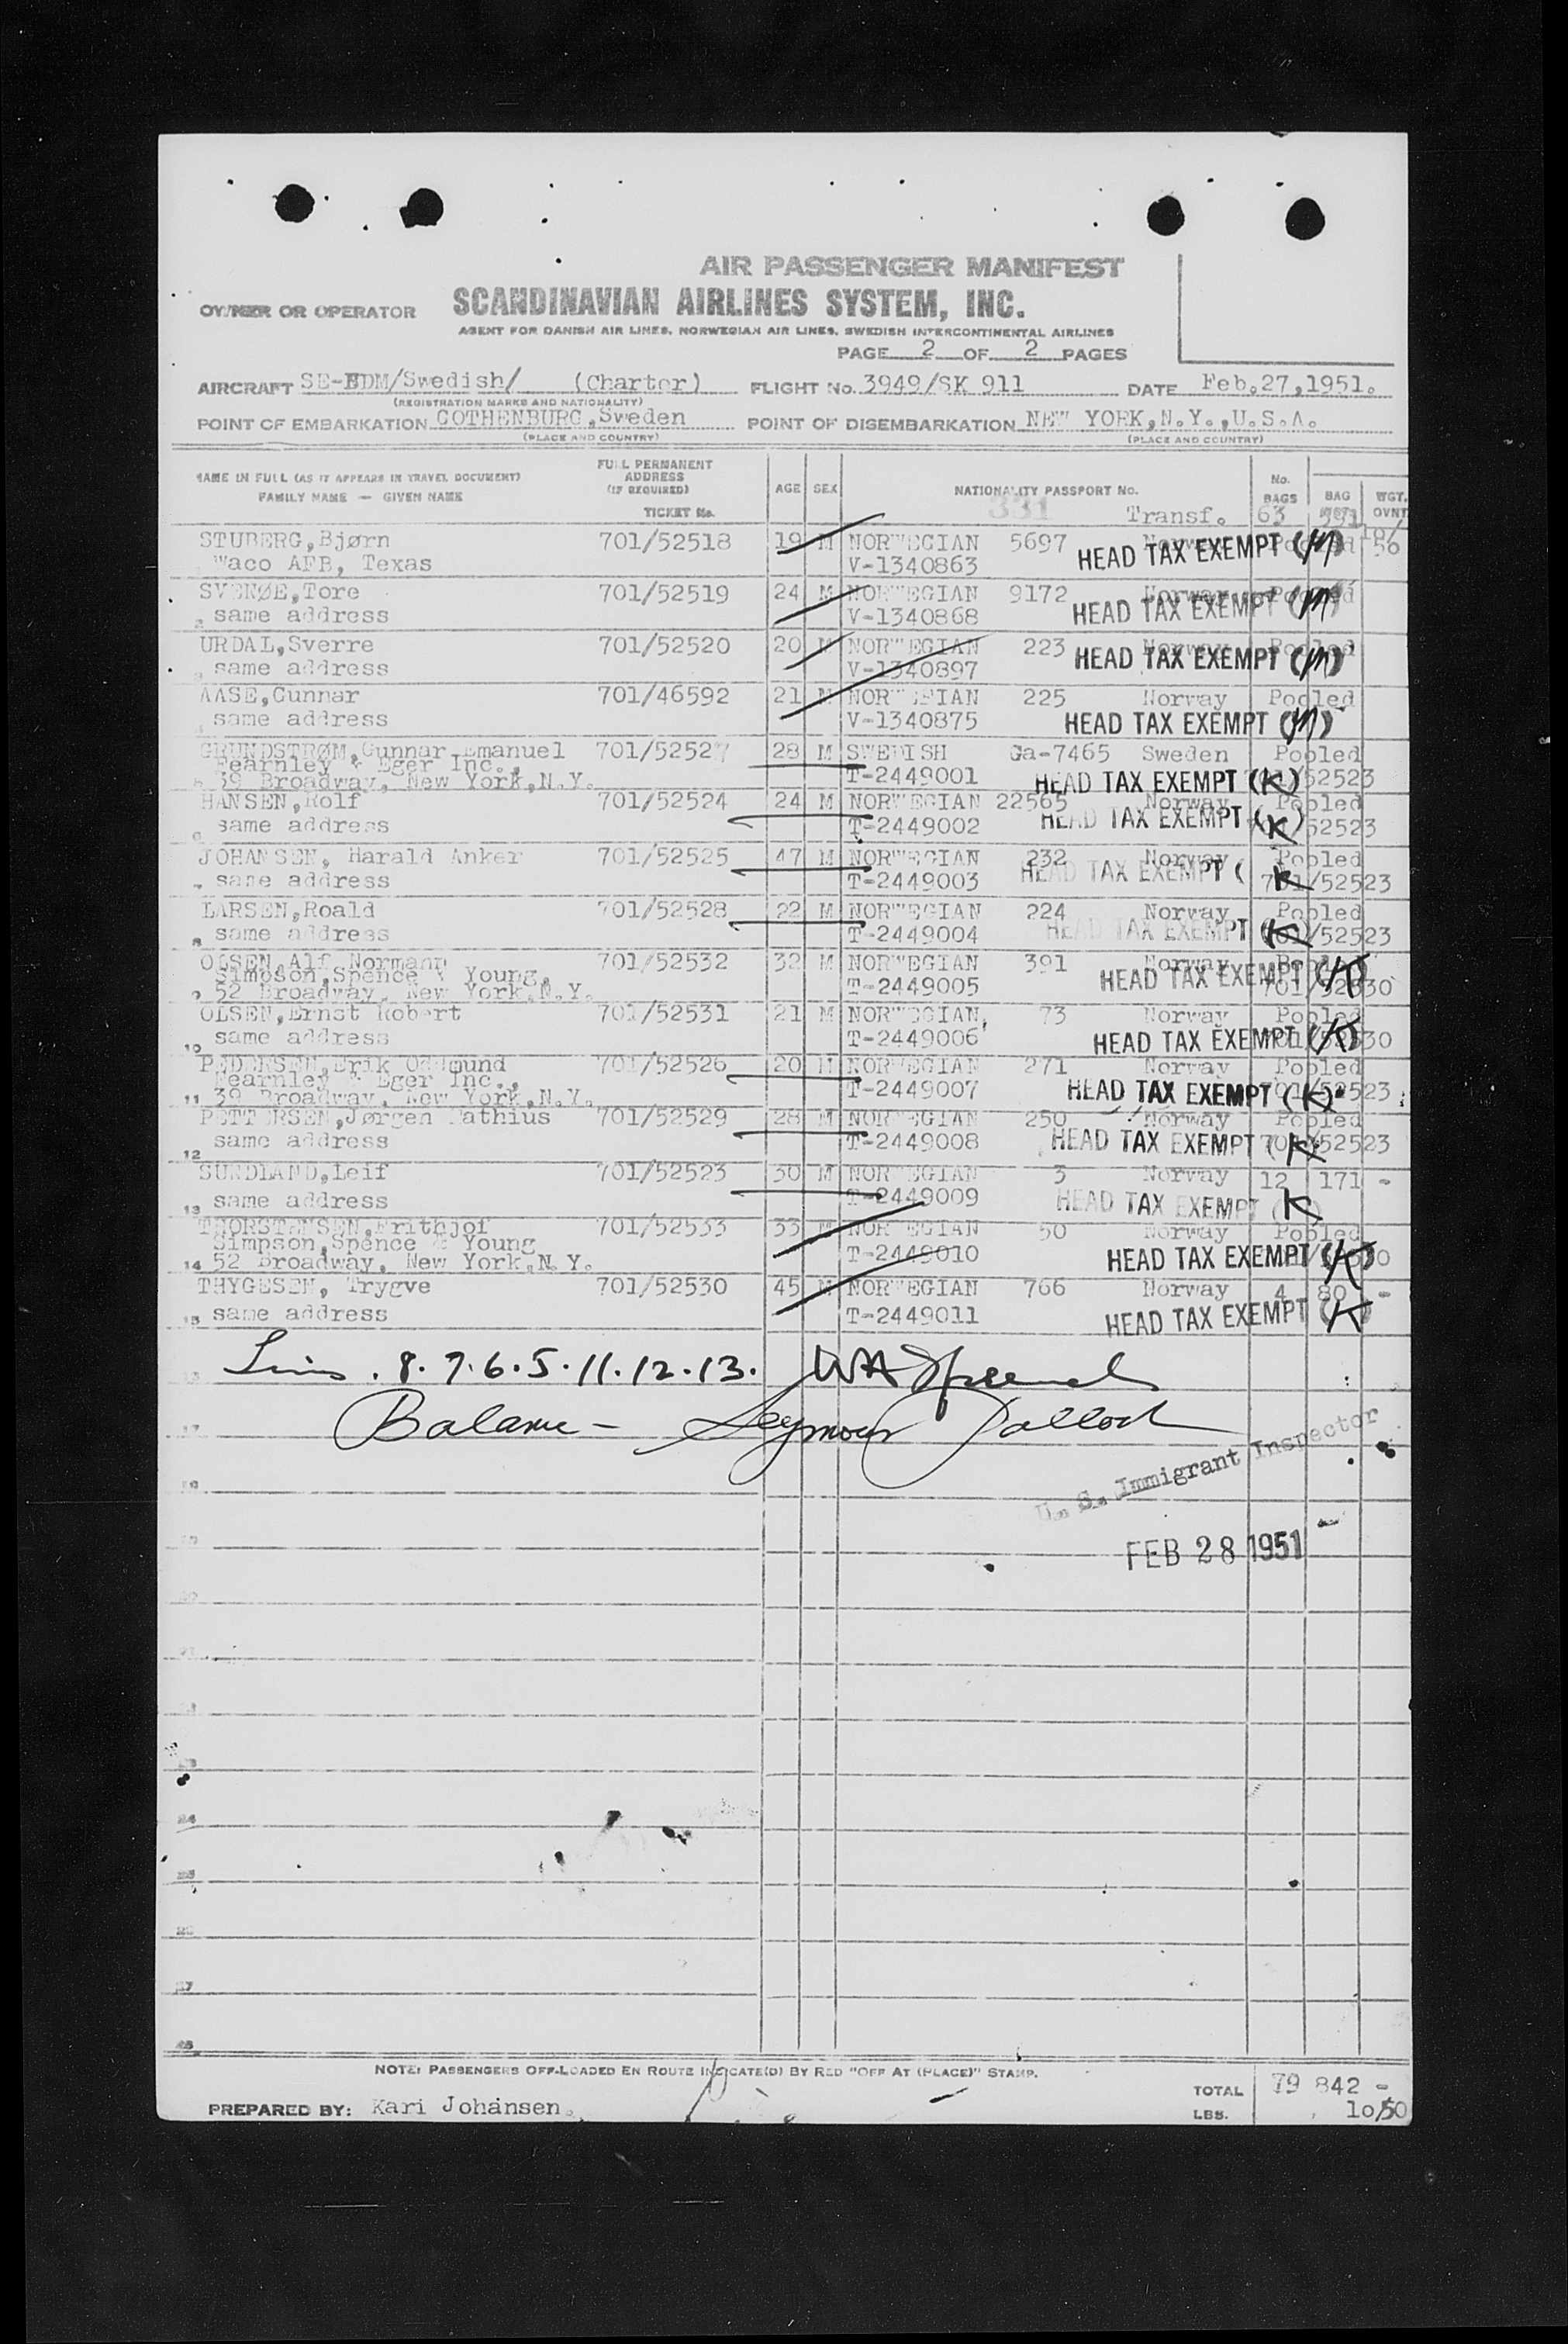 AIR PASSENGER MANIFEST
OWNER OR OPERATOR SCANDINAVIAN AIRLINES SYSTEM, INC.
AGENT FOR DANISH AIR LINES, NORWEGIAN AIR LINES, SWEDISH INTERCONTINENTAL AIRLINES
PAGE 2 OF 2 PAGES
AIRCRAFT SE-BDM/Swedish/ (Charter) FLIGHT No. 3949/SK 911 DATE Feb.27,1951.
(REGISTRATION MARKS AND NATIONALITY)
POINT OF EMBARKATION GOTHENBURG,Sweden POINT OF DISEMBARKATION NEW YORK,N.Y.,U.S.A.
(PLACE AND COUNTRY) (PLACE AND COUNTRY)
NAME IN FULL (AS IT APPEARS IN TRAVEL DOCUMENT) FAMILY NAME — GIVEN NAME
FULL PERMANENT ADDRESS (IF REQUIRED) TICKET No.
AGE SEX NATIONALITY PASSPORT No. No. BAGS BAG WGT. WGT. OVNT
331 Transf. 63 591
STUBERG,Bjørn 701/52518 19 M NORWEGIAN 5697 Norway Pooled
Waco AFB, Texas V-1340863 HEAD TAX EXEMPT (M)
SVENØE,Tore 701/52519 24 M NORWEGIAN 9172 Norway Pooled
2 same address V-1340868 HEAD TAX EXEMPT (M)
URDAL,Sverre 701/52520 20 M NORWEGIAN 223 Norway Pooled
3 same address V-1340897 HEAD TAX EXEMPT (M)
AASE,Gunnar 701/46592 21 M NORWEGIAN 225 Norway Pooled
same address V-1340875 HEAD TAX EXEMPT (M)
GRUNDSTRØM,Gunnar Emanuel 701/52527 28 M SWEDISH Ga-7465 Sweden Pooled
Fearnley & Eger Inc.,
39 Broadway, New York,N.Y. T-2449001 HEAD TAX EXEMPT (K) 52523
HANSEN,Rolf 701/52524 24 M NORWEGIAN 22565 Norway Pooled
6 same address T-2449002 HEAD TAX EXEMPT (K) 52523
JOHANSEN, Harald Anker 701/52525 47 M NORWEGIAN 232 Norway Pooled
7 same address T-2449003 HEAD TAX EXEMPT ( K 701/52523
LARSEN,Roald 701/52528 22 M NORWEGIAN 224 Norway Pooled
8 same address T-2449004 HEAD TAX EXEMPT (K 701/52523
OLSEN,Alf Normann 701/52532 32 M NORWEGIAN 391 Norway Pooled
Simpson,Spence & Young,
9 52 Broadway, New York,N.Y. T-2449005 HEAD TAX EXEMPT (K) 701/52530
OLSEN,Ernst Robert 701/52531 21 M NORWEGIAN 73 Norway Pooled
10 same address T-2449006 HEAD TAX EXEMPT (K) 701/52530
PEDERSEN,Erik Oddmund 701/52526 20 M NORWEGIAN 271 Norway Pooled
Fearnley & Eger Inc.,
11 39 Broadway, New York,N.Y. T-2449007 HEAD TAX EXEMPT (K) 701/52523
PETTERSEN,Jørgen Mathius 701/52529 28 M NORWEGIAN 250 Norway Pooled
12 same address T-2449008 HEAD TAX EXEMPT (K) 701/52523
SUNDLAND,Leif 701/52523 30 M NORWEGIAN 3 Norway 12 171 -
13 same address T-2449009 HEAD TAX EXEMPT (K)
THORSTENSEN,Frithjof 701/52533 33 M NORWEGIAN 50 Norway Pooled
Simpson,Spence & Young
14 52 Broadway, New York,N.Y. T-2449010 HEAD TAX EXEMPT (K)
THYGESEN, Trygve 701/52530 45 M NORWEGIAN 766 Norway 4 80 -
15 same address T-2449011 HEAD TAX EXEMPT (K)
8.7.6.5.11.12.13.
17 Balance - Seymour
U. S. Immigrant Inspector
18
19 FEB 28 1951
20
21
23
24
25
26
27
28
NOTE: PASSENGERS OFF-LOADED EN ROUTE INDICATE(D) BY RED "OFF AT (PLACE)" STAMP.
TOTAL 79 842 -
PREPARED BY: Kari Johansen. LBS. 10/50